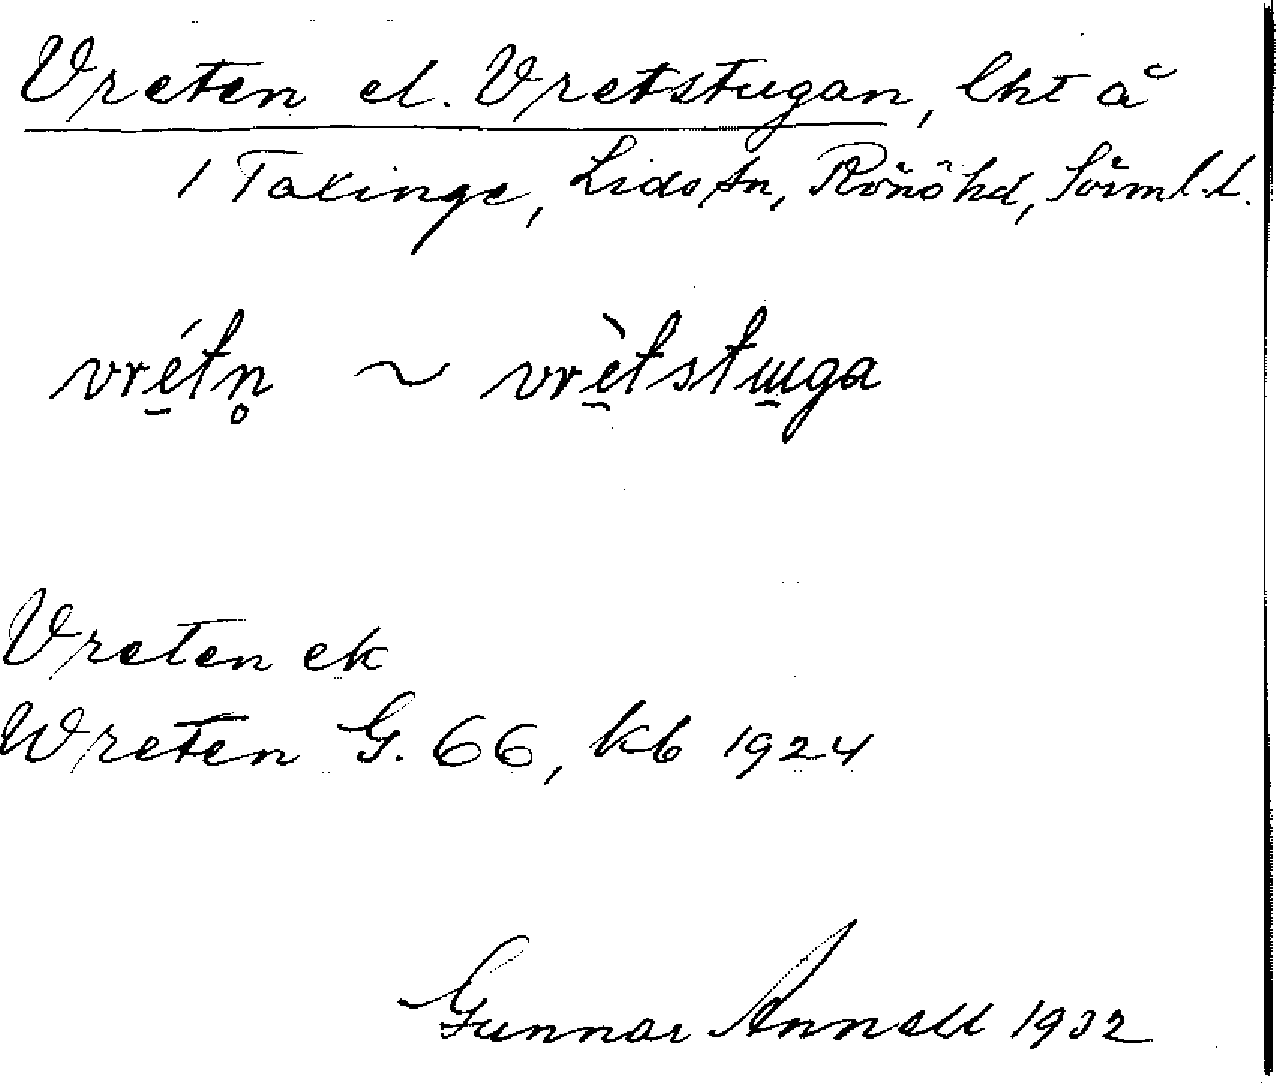 Vreten el. Vretstugan, lht å
1 Taxinge, Lids sn, Rönö hd, Sörml. l.
vrétn̥ ~ vrètstɯga
Vreten ek
Wreten G. 66, kb 1924
Gunnar Annell 1932